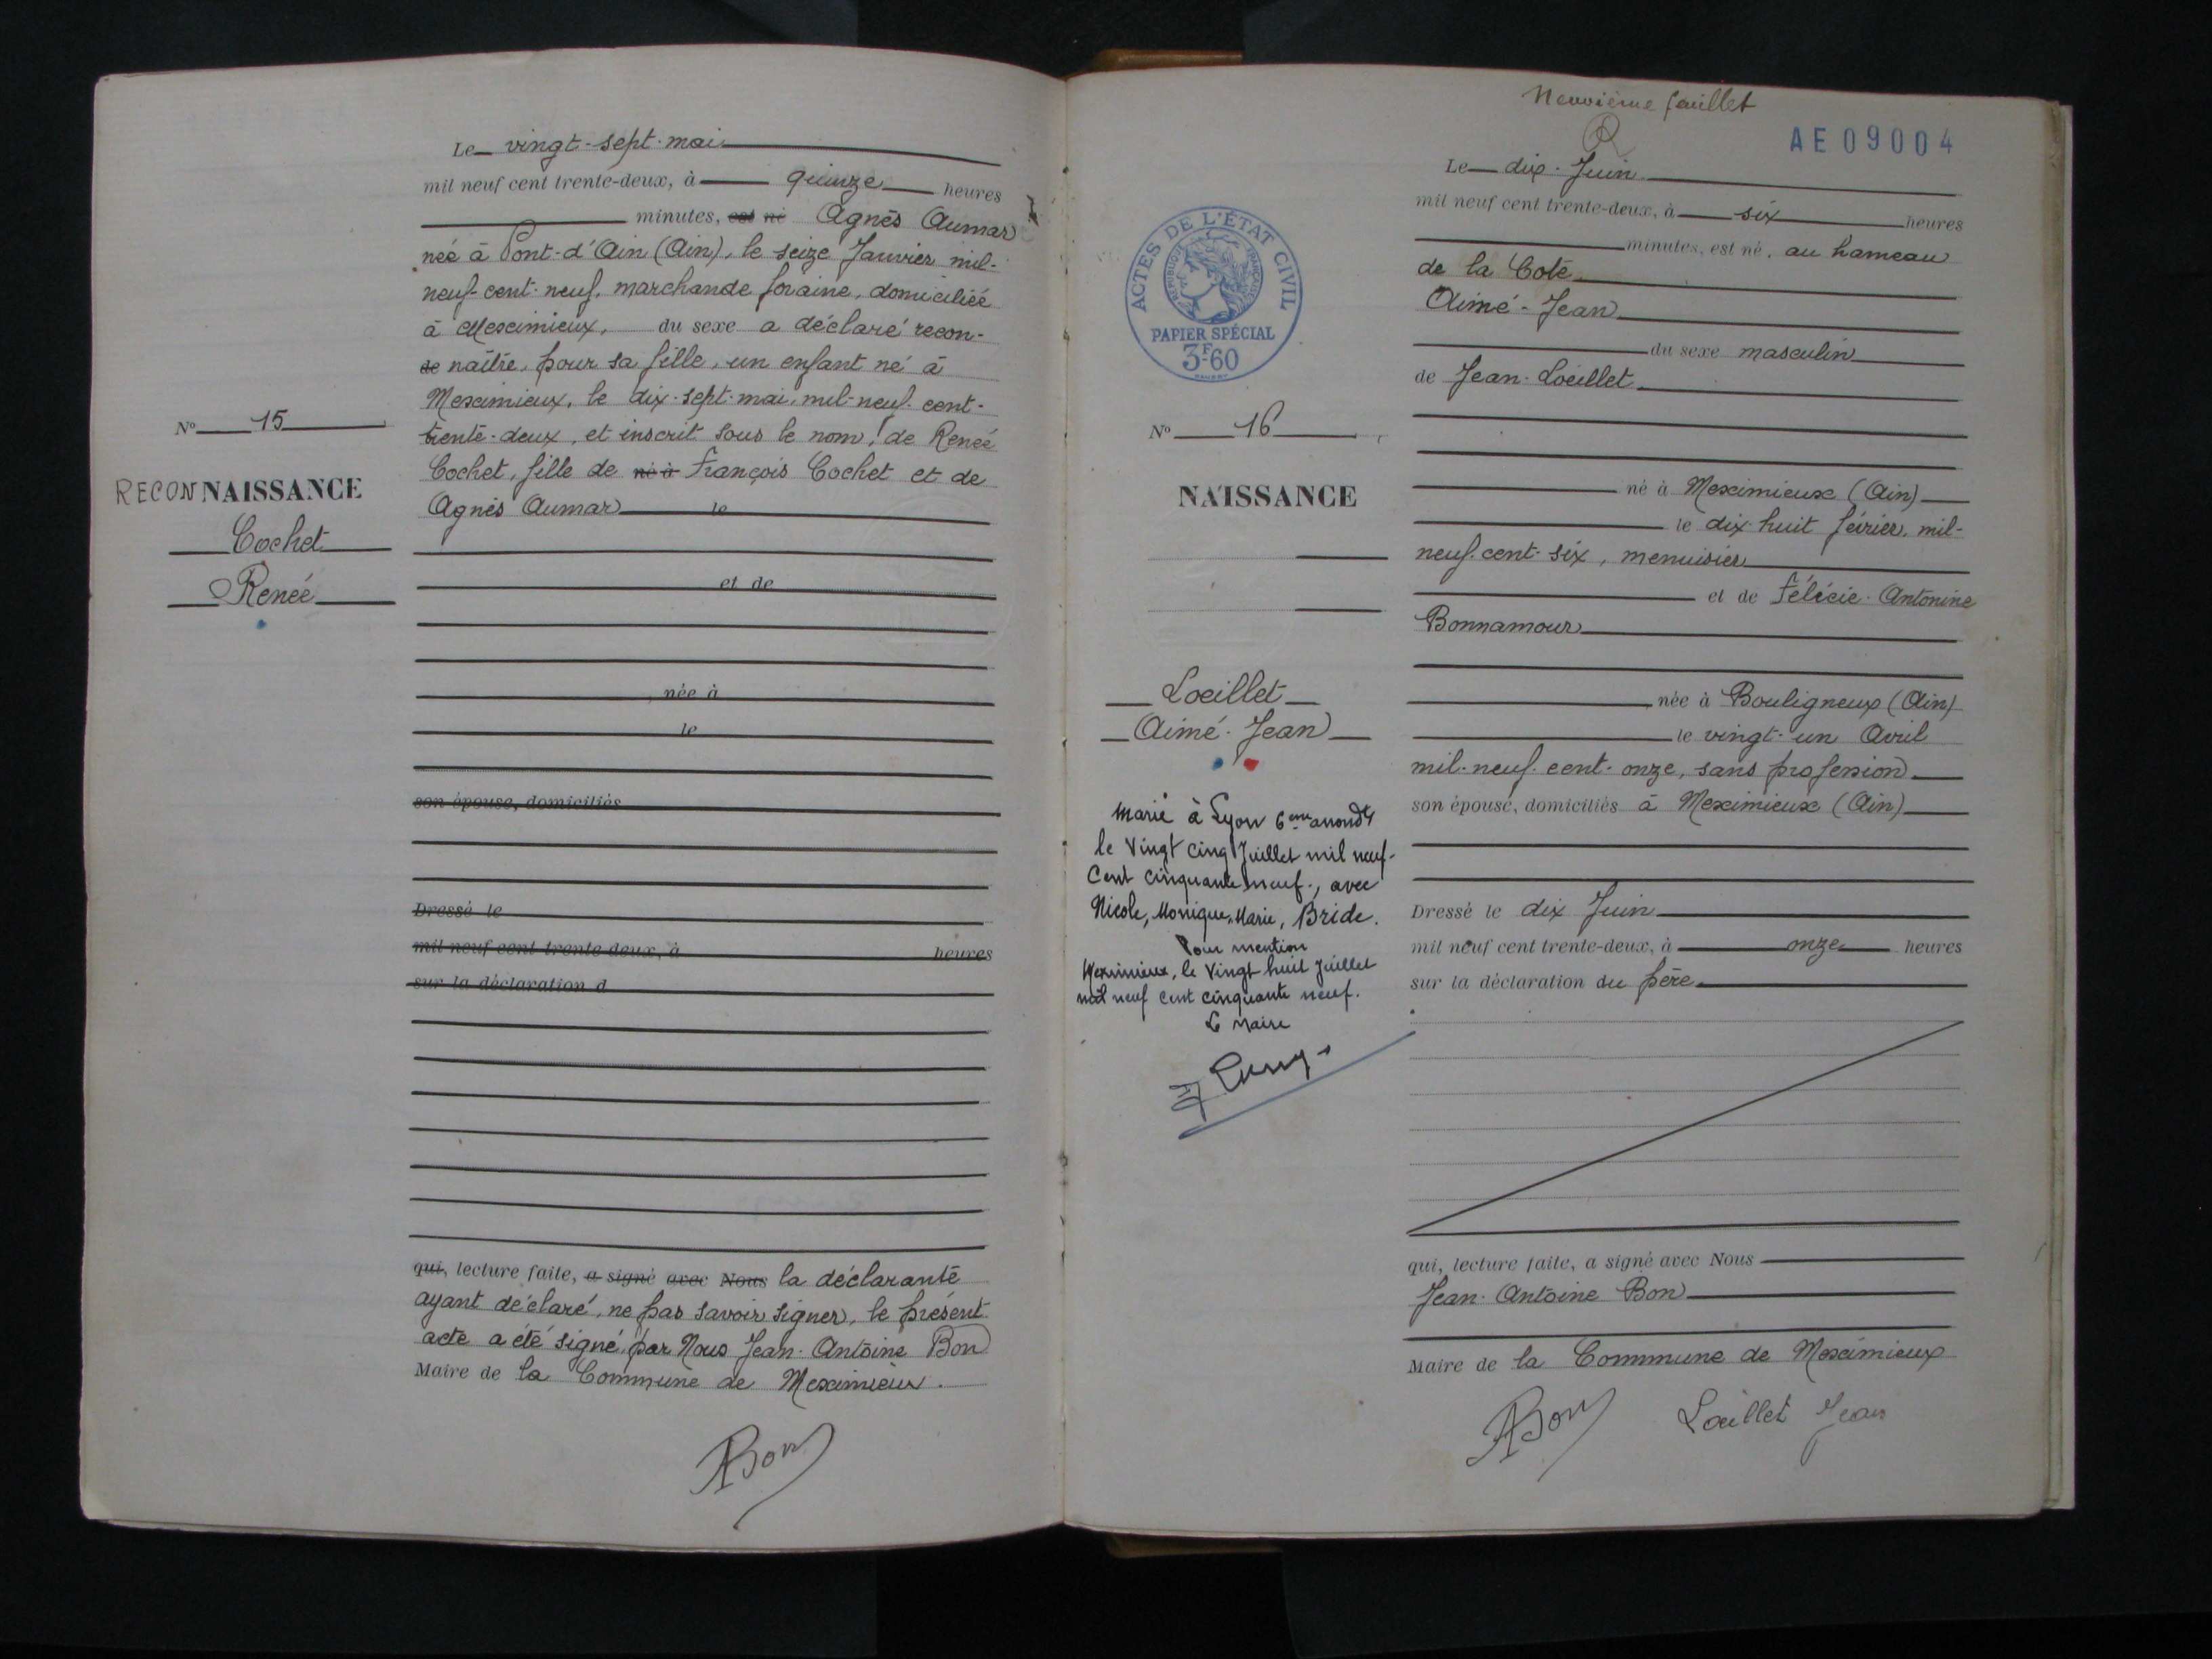 Le vingt-sept mai
mil neuf cent trente-deux, à quinze heures
minutes, est né Agnès Aumar
née à Pont-d'Ain (Ain), le seize Janvier mil-
neuf-cent-neuf, marchande foraine, domiciliée
à Meximieux, du sexe a déclaré recon-
de naître, pour sa fille, un enfant né à
Meximieux, le dix-sept-mai, mil-neuf-cent-
trente-deux, et inscrit sous le nom de Renée
Cochet, fille de né à François Cochet et de
Agnès Aumar le
et de
née à
le
son épouse, domiciliés
Dressé le
mil neuf cent trente-deux, à heures
sur la déclaration d
qui, lecture faite, a signé avec Nous la déclarante
ayant déclaré, ne pas savoir signer, le présent
acte a été signé par Nous Jean-Antoine Bon
Maire de la Commune de Meximieux.
ABon
N° 15
RECONNAISSANCE
Cochet
Renée
Neuvième feuillet
AE09004
ACTES DE L'ÉTAT CIVIL
RÉPUBLIQUE FRANÇAISE
PAPIER SPÉCIAL
3F60
N° 16
NAISSANCE
Loeillet
Aimé-Jean
Marié à Lyon 6eme arrondt
le Vingt cinq Juillet mil neuf-
Cent cinquante neuf, avec
Nicole, Monique, Marie, Bride.
Pour mention
Meximieux, le Vingt huit Juillet
mil neuf cent cinquante neuf.
Le Maire
Le dix-Juin
mil neuf cent trente-deux, à six heures
minutes, est né, au hameau
de la Coté
Aimé-Jean
du sexe masculin
de Jean-Loeillet
né à Meximieux (Ain)
le dix-huit février, mil-
neuf-cent-six, menuisier
et de Félécie-Antonine
Bonnamour
née à Bouligneux (Ain)
le vingt-un Avril
mil-neuf-cent-onze, sans profession
son épouse, domiciliés à Meximieux (Ain)
Dressé le dix Juin
mil neuf cent trente-deux, à onze heures
sur la déclaration du père
qui, lecture faite, a signé avec Nous
Jean-Antoine Bon
Maire de la Commune de Meximieux
ABon Loeillet Jean